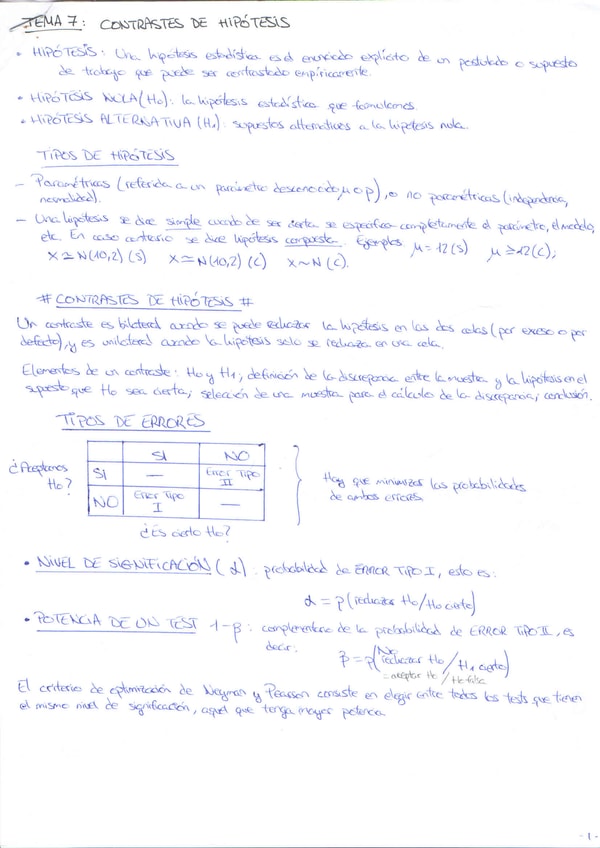 TEMA 7: CONTRASTES DE HIPÓTESIS
• HIPÓTESIS: Una hipótesis estadística es el enunciado explícito de un postulado o supuesto
de trabajo que puede ser contrastado empíricamente.
• HIPÓTESIS NULA (H0): la hipótesis estadística que formulamos
• HIPÓTESIS ALTERNATIVA (H1): supuestos alternativos a la hipótesis nula.
TIPOS DE HIPÓTESIS
– Paramétricas (referida a un parámetro desconocido, μ o p), o no paramétricas (independencia,
normalidad).
– Una hipótesis se dice simple cuando de ser cierta se especifica completamente el parámetro, el modelo,
etc. En caso contrario se dice hipótesis compuesta. Ejemplos μ = 12 (S) μ ≥ 12 (C);
X ≃ N(10,2) (S) X ≃ N(10,2) (C) X ~ N (C).
# CONTRASTES DE HIPÓTESIS #
Un contraste es bilateral cuando se puede rechazar la hipótesis en las dos colas (por exceso o por
defecto), y es unilateral cuando la hipótesis solo se rechaza en una cola.
Elementos de un contraste: H0 y H1; definición de la discrepancia entre la muestra y la hipótesis en el
supuesto que H0 sea cierta; selección de una muestra para el cálculo de la discrepancia; conclusión.
TIPOS DE ERRORES
SI NO
¿Aceptamos H0? SI — Error Tipo II
NO Error Tipo I —
¿Es cierto H0?
Hay que minimizar las probabilidades
de ambos errores.
• NIVEL DE SIGNIFICACIÓN (α): probabilidad de ERROR TIPO I, esto es:
α = p(rechazar H0/H0 cierto)
• POTENCIA DE UN TEST 1-β: complementario de la probabilidad de ERROR TIPO II, es
decir:
β = p(No rechazar H0 / H1 cierto)
aceptar H0 / H0 falsa
El criterio de optimización de Neyman y Pearson consiste en elegir entre todos los tests que tienen
el mismo nivel de significación, aquel que tenga mayor potencia.
-1-